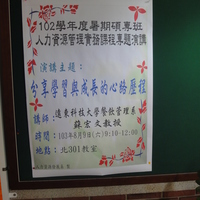 102學年度暑期碩專班
人力資源管理實務課程專題演講
演講主題：
分享學習與成長的心路歷程
講師：遠東科技大學餐飲管理系
蘇宏文教授
時間：103年8月9日(六)9:10-12:00
地點：北301教室